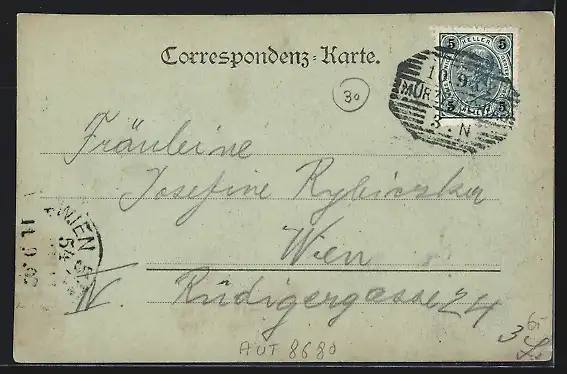 Correspondenz-Karte.
5 HELLER 5
10 9
MÜRZ
3. N
5 5
30
Fräuleine
Josefine Rybiczka
Wien
IV. Rüdigergasse 24
WIEN
54
11.9.02
AUT 8680
3